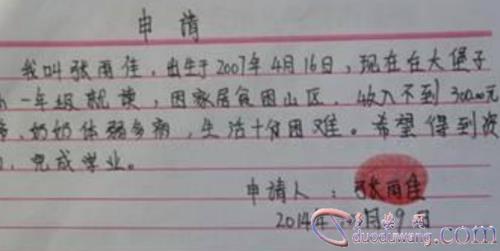 申请
我叫张雨佳，出生于2007年4月16日，现在在大堡子
一年级就读，因家居贫困山区，收入不到3000元
奶奶体弱多病，生活十分困难。希望得到资
完成学业。
申请人：张雨佳
2014年 月 9日
duoduwang.com